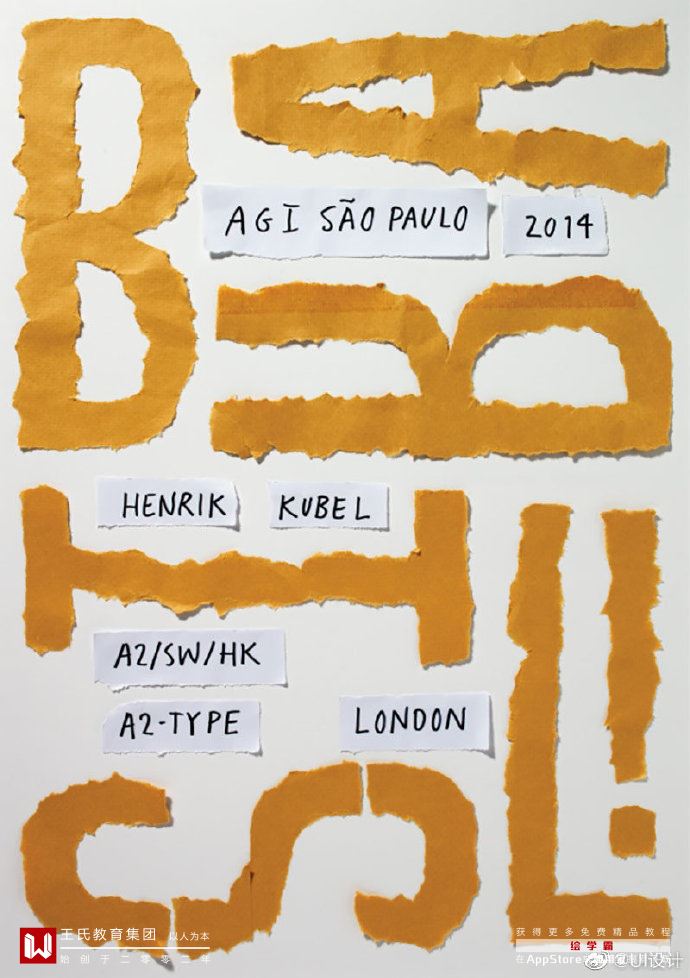 B A
AGI SÃO PAULO 2014
R
HENRIK KUBEL
I
A2/SW/HK
A2-TYPE LONDON
S L!
王氏教育集团 以人为本
始创于二零零三年
获得更多免费精品教程
绘学霸
在AppStore
@UI设计